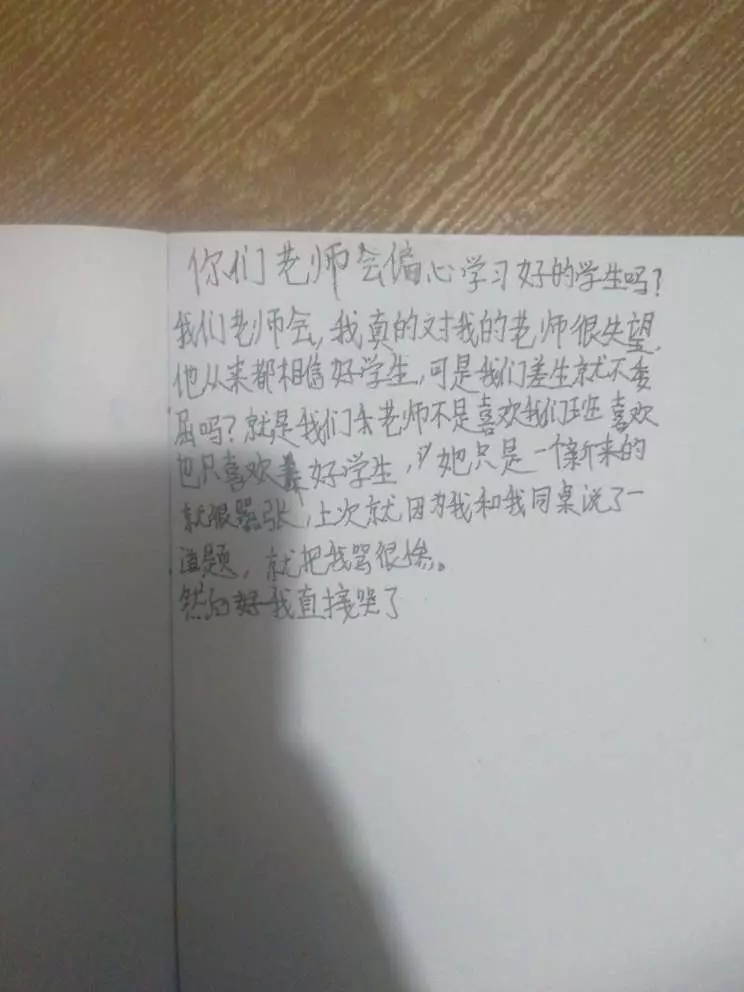 你们老师会偏心学习好的学生吗?
我们老师会,我真的对我的老师很失望,
他从来都相信好学生,可是我们差生就不委
屈吗?就是我们老师不是喜欢我们班喜欢
也只喜欢好学生,她只是一个新来的
就很嚣张,上次就因为我和我同桌说了一
道题,就把我骂很惨。
然后我直接哭了